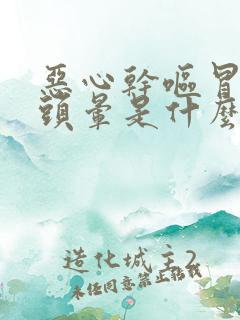 惡心幹嘔冒
頭暈是什麽
造化城主2
未经同意禁止转载